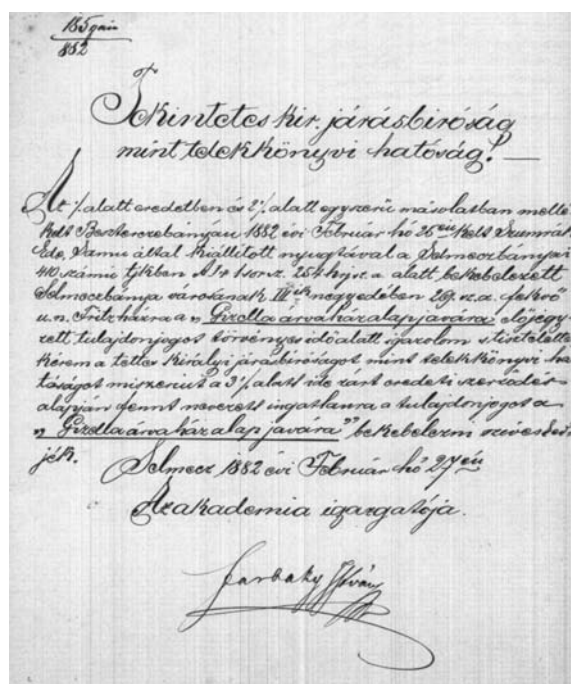 185 gain
882
Tekintetes kir. járásbiróság
mint telekkönyvi hatóság! —
Az 1/. alatt eredetben és 2/. alatt egyszerű másolatban mellé
kelt Beszterczebányán 1882 évi Február hó 25 én kelt Szumrák
Ede, Samu által kiállított nyugtával a Selmeczbányai
410 számú tjkben A I + 1 sorsz. 254 hrjsz. a. alatt bekebelezett
Selmeczbánya városának III ik negyedében 269. sz. a. fekvő
u. n. Fritz házra a „Gizella árva ház alap javára előjegy-
zett tulajdonjogot törvényes idő alatt igazolom s tisztelettel
kérem a tettes királyi járásbiróságot mint telekkönyvi ha-
tóságot miszerint a 3/. alatt ide zárt eredeti szerződés
alapján fennt nevezett ingatlanra a tulajdonjogot a
„Gizella árva ház alap javára” bekebelezni sziveskedi
jék.
Selmecz 1882 évi Február hó 27 én
Az akademia igazgatója.
Farbaky István